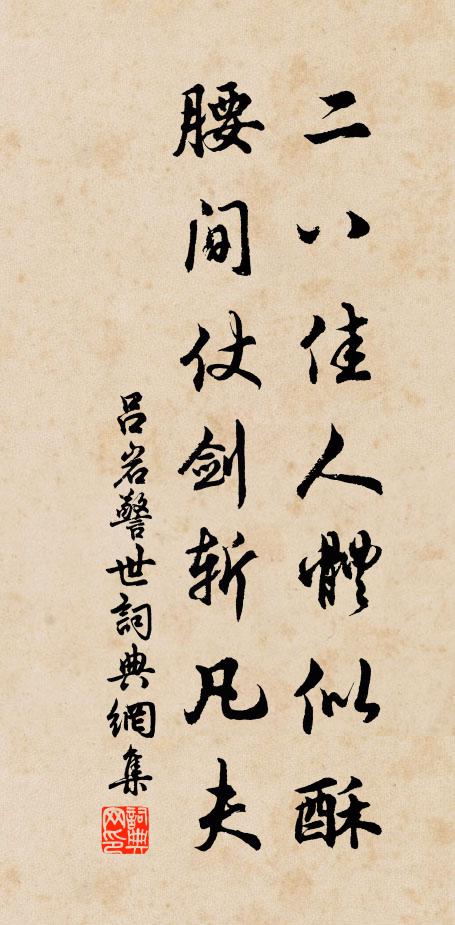 二八佳人體似酥
腰间仗剑斩凡夫
吕岩警世詞典網集
詞典网印